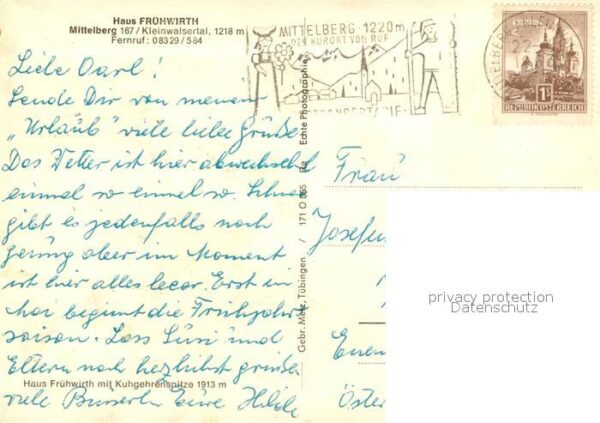 Haus FRÜHWIRTH
Mittelberg 167/Kleinwalsertal, 1218 m
Fernruf: 08329/584
MITTELBERG 1220m
DER KURORT VON RUF
1S
REPUBLIK ÖSTERREICH
Sende Dir von meinem
"Urlaub" viele liebe Grüße
Das Wetter ist hier abwechselnd
einmal so einmal so. Schnee
gibt es jedenfalls noch
genug aber im Moment
ist hier alles leer. Erst im
Mai beginnt die Frühjahrs
saison. Lass Susi und
Eltern noch herzlichst grüßen
viele Busserln Eure Hilde
Haus Frühwirth mit Kuhgehrenspitze 1913 m
Gebr. Metz, Tübingen / 171 O Echte Photographie
Frau
privacy protection
Datenschutz
Öster